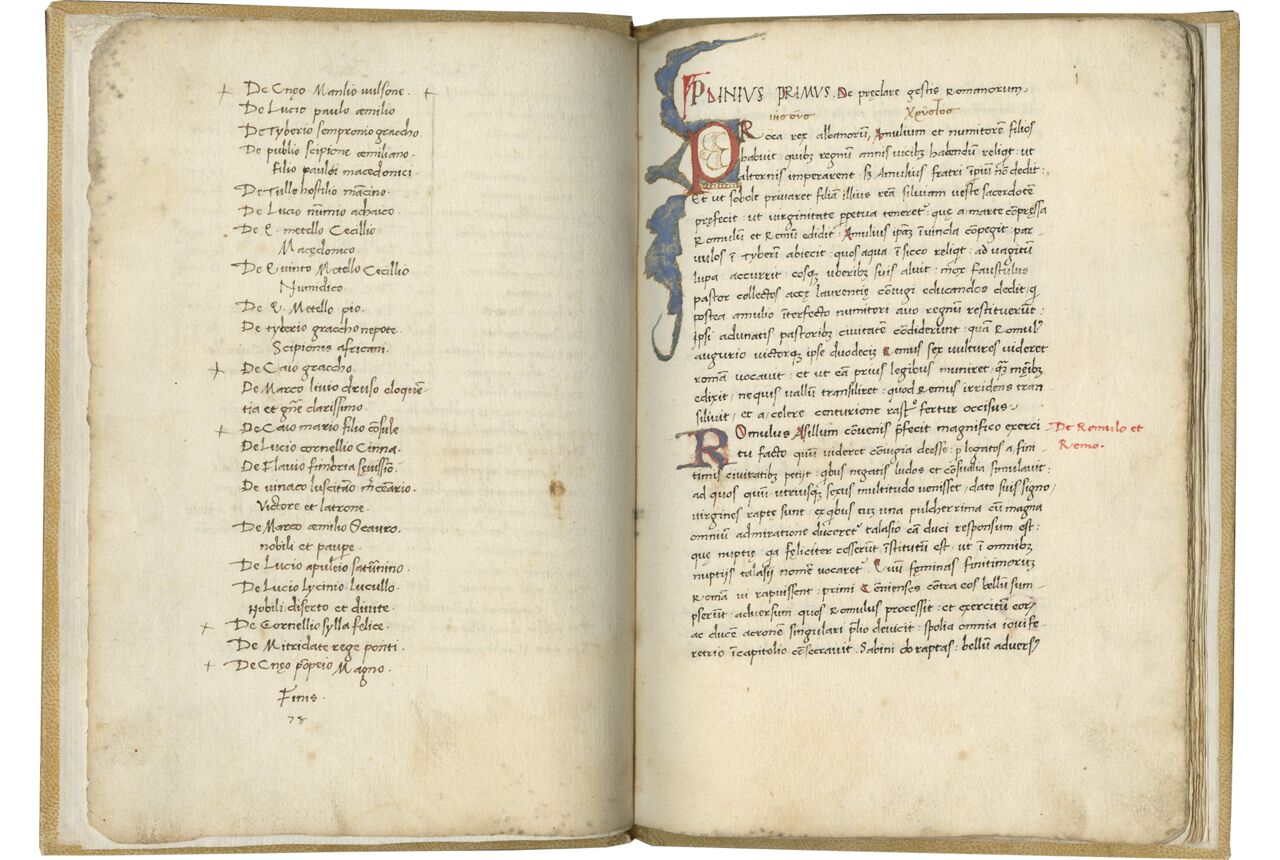 + De Cnęo Manlio vulsone. +
De Lucio paulo æmilio
De Tyberio sempronio graccho.
De publio scipione æmiliano.
filio pauli macedonici
De Tullo hostilio mãcino.
De Lucio nũmio achaico.
De Q. metello Cecillio
Macędonico.
De Quinto Metello Cecillio
Numidico.
De Q. Metello pio.
De tyberio graccho nepote.
Scipionis africani.
+ De Caio graccho.
De Marco livio druso eloquẽ
tia et gñe clarissimo.
+ De Caio mario filio cõsule
De Lucio cornellio Cinna.
De Flavio fimbria
De viriaco luscitão
Victore et latrone.
De Marco æmilio Scauro.
nobili et paupe.
De Lucio apuleio satũnino.
De Lucio Lycinio Lucullo.
Nobili diserto et divite.
+ De Cornellio sylla felice.
De Mitridate rege ponti.
+ De Cnęo põpeio Magno.
Finis.
78
1
PLINIVS PRIMVS De pręclare gestis Romanorum.
ιησους Χρύστος
PRoca rex albanorũ, Amulium et numitorẽ filios
habuit: quibꝫ regnum annis vicibꝫ habendũ religt: ut
alternis imperarent. Sꝫ Amulius fratri ĩpiũ nõ dedit:
Et ut sobole privaret filiã illius reã silviam vestę sacerdotẽ
pręfecit: ut virginitate ꝑpetua teneret: quę a marte cõpressa
Romulũ et Remũ edidit: Amulius ipãꝫ ĩ vincla cõpegit: par-
vulos ĩ tyberĩ abiecit: quos aqua ĩ sicco religt: ad vagitum
lupa accurrit: eosqꝫ uberibꝫ suis aluit: mox faustulus
pastor collectos accę laurentię cõiugi educandos dedit: q̃
postea amulio ĩterfecto numitori avo regnũ restituerũt:
Ipsi adunatis pastoribꝫ civitatẽ cõdiderunt: quã Romulꝰ
augurio victorqꝫ ipse duodecĩ Remus sex vultures videret
romã vocavit: et ut eã prius legibus muniret:
edixit, nequis vallũ transiliret: quod Remus irridens tran
silivit, et a, celere centurione rastꝰ fertur occisus.
ROmulus Asillum cõvenis p̃fecit magnifico exerci
De Romulo et
Remo.
tu facto quũ videret cõiugia deesse: ꝑ legatos a fini
timis civitatibꝫ petijt: qbus negatis ludos et cõsudia simulavit:
ad quos quũ utriusqꝫ sexus multitudo venisset, dato suis signo,
virgines raptę sunt: ex qbus cuꝫ una pulcherrima cũ magna
omnium admiratione duceret talasio eã duci responsum est:
quę nuptię: qa feliciter cesserũt, ĩstitutũ est, ut ĩ omnibꝫ
nuptijs talasii nomẽ vocaret. Quũ feminas finitimoruꝫ
Romã vi rapuissent: primi Cenienses cõtra eos bellũ sum-
pserũt: adversum quos Romulus processit: et exercitũ
ac ducẽ acronẽ singulari p̃lio devicit: spolia omnia iovi fe-
retrio ĩ capitolio cõsecravit. Sabini ob raptas: bellũ adversꝰ